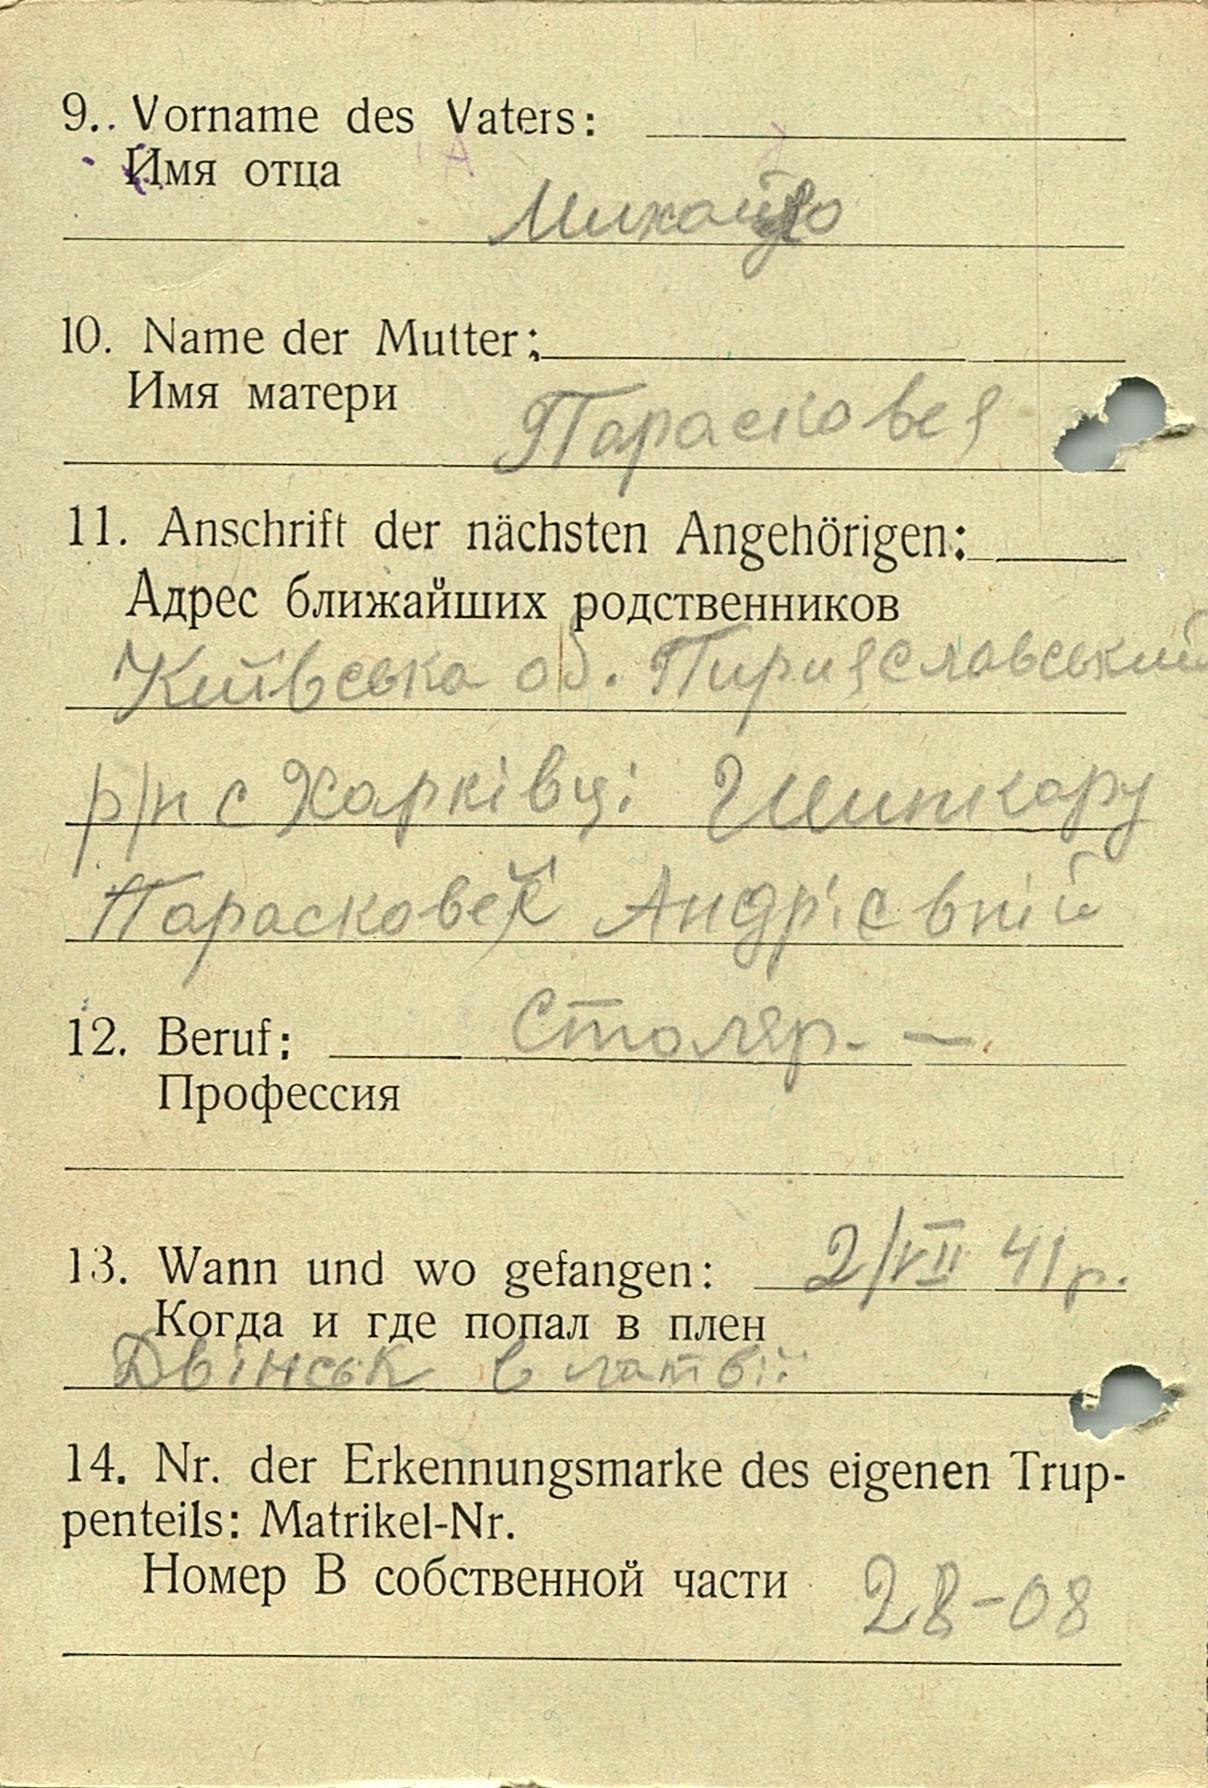 9. Vorname des Vaters:
Имя отца
Михайло
10. Name der Mutter:
Имя матери
Парасковея
11. Anschrift der nächsten Angehörigen:
Адрес ближайших родственников
Київська об. Пирияславський
р/н с Харківці Шинкару
Парасковеї Андрієвній
12. Beruf: Столяр. —
Профессия
13. Wann und wo gefangen: 2/VII 41 р.
Когда и где попал в плен
Двінськ в латвії
14. Nr. der Erkennungsmarke des eigenen Trup-
penteils: Matrikel-Nr.
Номер В собственной части 28-08